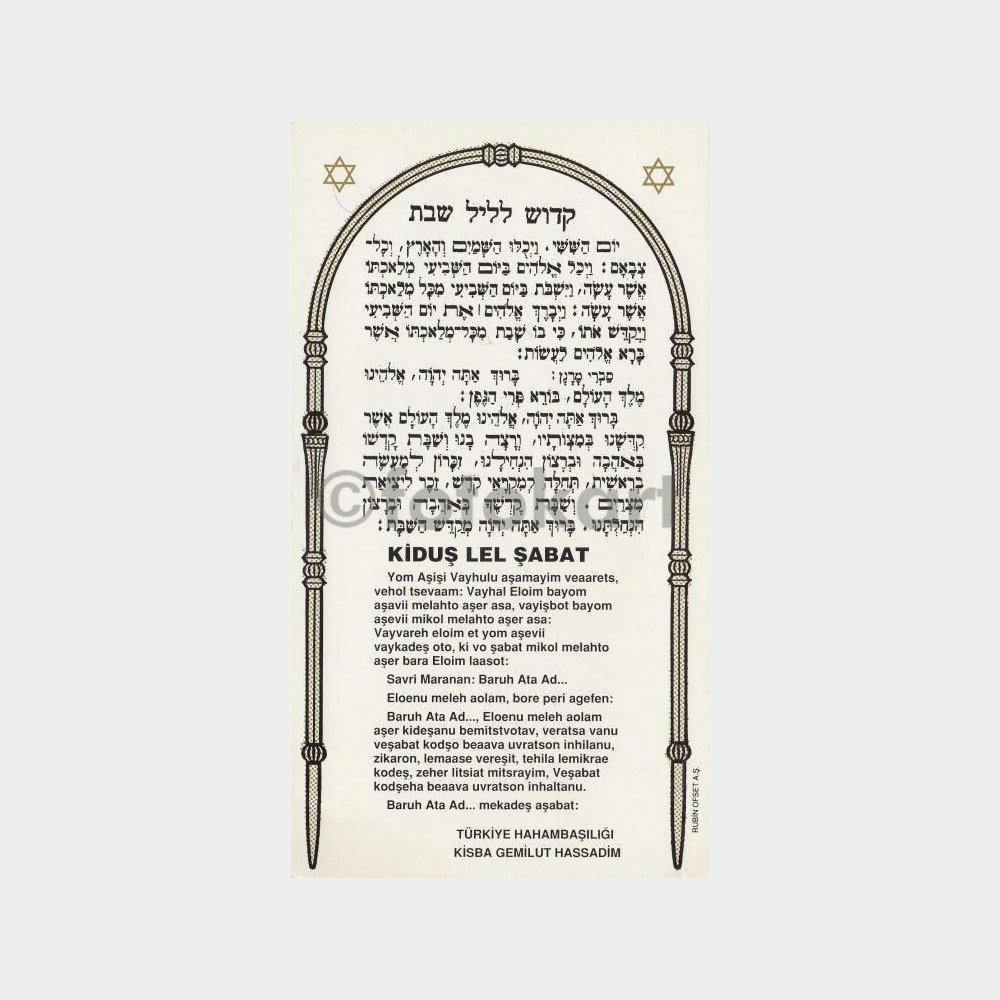 קדוש לליל שבת
יוֹם הַשִּׁשִּׁי. וַיְכֻלּוּ הַשָּׁמַיִם וְהָאָרֶץ, וְכָל־
צְבָאָם: וַיְכַל אֱלֹהִים בַּיּוֹם הַשְּׁבִיעִי מְלַאכְתּוֹ
אֲשֶׁר עָשָׂה, וַיִּשְׁבֹּת בַּיּוֹם הַשְּׁבִיעִי מִכָּל מְלַאכְתּוֹ
אֲשֶׁר עָשָׂה: וַיְבָרֶךְ אֱלֹהִים׀ אֶת יוֹם הַשְּׁבִיעִי
וַיְקַדֵּשׁ אֹתוֹ, כִּי בוֹ שָׁבַת מִכָּל־מְלַאכְתּוֹ אֲשֶׁר
בָּרָא אֱלֹהִים לַעֲשׂוֹת:
סַבְרִי מָרָנָן: בָּרוּךְ אַתָּה יְהֹוָה, אֱלֹהֵינוּ
מֶלֶךְ הָעוֹלָם, בּוֹרֵא פְּרִי הַגֶּפֶן:
בָּרוּךְ אַתָּה יְהֹוָה, אֱלֹהֵינוּ מֶלֶךְ הָעוֹלָם אֲשֶׁר
קִדְּשָׁנוּ בְּמִצְוֹתָיו, וְרָצָה בָנוּ וְשַׁבַּת קָדְשׁוֹ
בְּאַהֲבָה וּבְרָצוֹן הִנְחִילָנוּ, זִכָּרוֹן לְמַעֲשֵׂה
בְרֵאשִׁית, תְּחִלָּה לְמִקְרָאֵי קֹדֶשׁ, זֵכֶר לִיצִיאַת
מִצְרַיִם, וְשַׁבַּת קָדְשְׁךָ בְּאַהֲבָה וּבְרָצוֹן
הִנְחַלְתָּנוּ. בָּרוּךְ אַתָּה יְהֹוָה מְקַדֵּשׁ הַשַּׁבָּת:
©fotokart
KİDUŞ LEL ŞABAT
Yom Aşişi Vayhulu aşamayim veaarets,
vehol tsevaam: Vayhal Eloim bayom
aşavii melahto aşer asa, vayişbot bayom
aşevii mikol melahto aşer asa:
Vayvareh eloim et yom aşevii
vaykadeş oto, ki vo şabat mikol melahto
aşer bara Eloim laasot:
Savri Maranan: Baruh Ata Ad...
Eloenu meleh aolam, bore peri agefen:
Baruh Ata Ad..., Eloenu meleh aolam
aşer kideşanu bemitstvotav, veratsa vanu
veşabat kodşo beaava uvratson inhilanu,
zikaron, lemaase vereşit, tehila lemikrae
kodeş, zeher litsiat mitsrayim, Veşabat
kodşeha beaava uvratson inhaltanu.
Baruh Ata Ad... mekadeş aşabat:
TÜRKİYE HAHAMBAŞILIĞI
KİSBA GEMİLUT HASSADİM
RUBİN OFSET A.Ş.